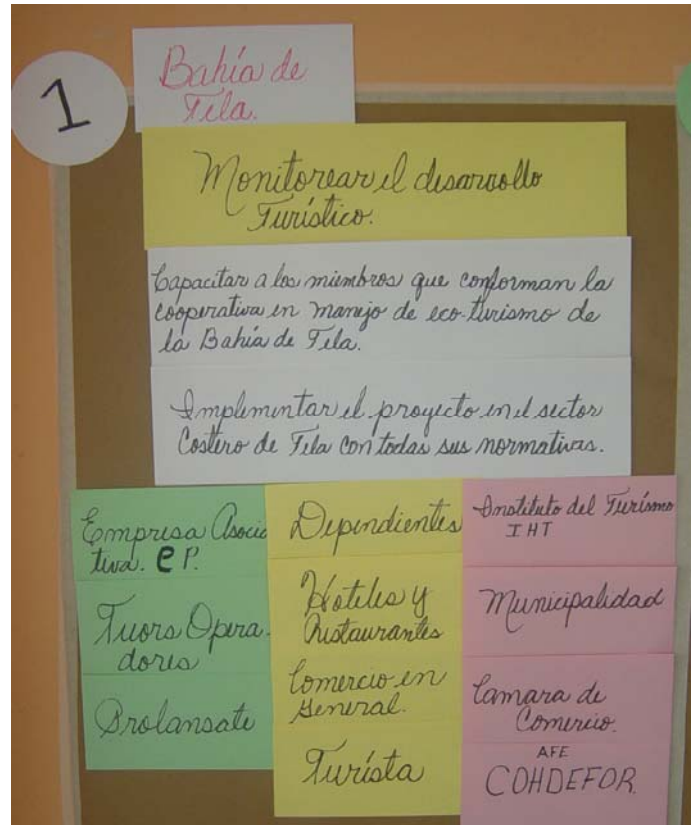 1
Bahía de
Tela.
Monitorear el desarrollo
Turístico.
Capacitar a los miembros que conforman la
cooperativa en manejo de eco-turismo de
la Bahía de Tela.
Implementar el proyecto en el sector
Costero de Tela con todas sus normativas.
Empresa Asocia
tiva. e P.
Tuors Opera-
dores
Prolansate
Dependientes
Hoteles y
Restaurantes
Comercio en
General.
Turísta
Instituto del Turísmo
IHT
Municipalidad
Camara de
Comercio.
AFE
COHDEFOR.